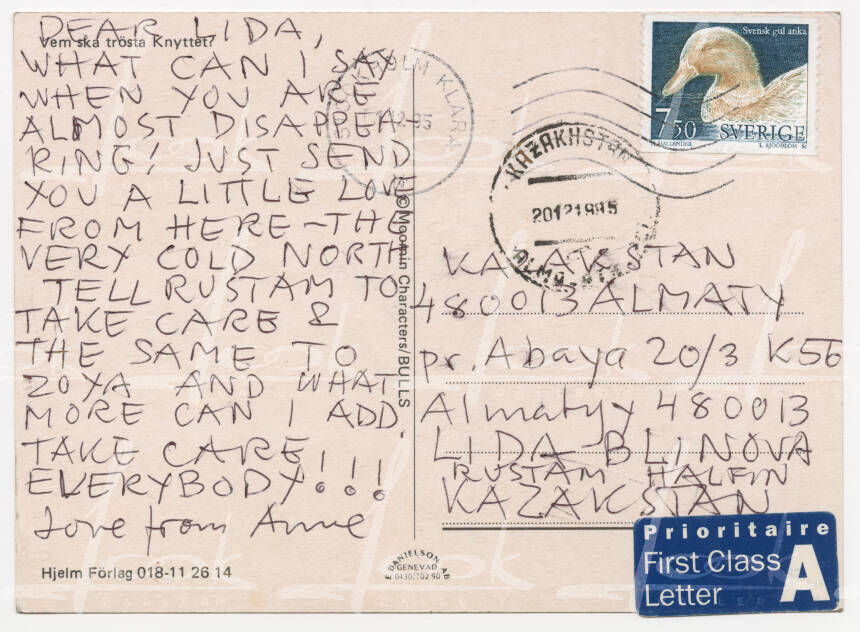 Vem ska trösta Knyttet?
DEAR LIDA,
WHAT CAN I SAY
WHEN YOU ARE
ALMOST DISAPPEA
RING! JUST SEND
YOU A LITTLE LOVE
FROM HERE - THE
VERY COLD NORTH
TELL RUSTAM TO
TAKE CARE &
THE SAME TO
ZOYA AND WHAT
MORE CAN I ADD
TAKE CARE,
EVERYBODY!!!
Love from Anne
Hjelm Förlag 018-11 26 14
© Moomin Characters/BULLS
E DANIELSON AB
GENEVAD
0430/702 90
STOCKHOLM KLARA
KAZAKHSTAN
20121995
Svensk gul anka
7,50 SVERIGE
L. SJÖÖBLOM Sc
KAZAKSTAN
480013 ALMATY
pr. Abaya 20/3 K56
Almatyy 480013
LIDA BLINOVA
RUSTAM HALFIN
KAZAKSTAN
Prioritaire
First Class
Letter
A